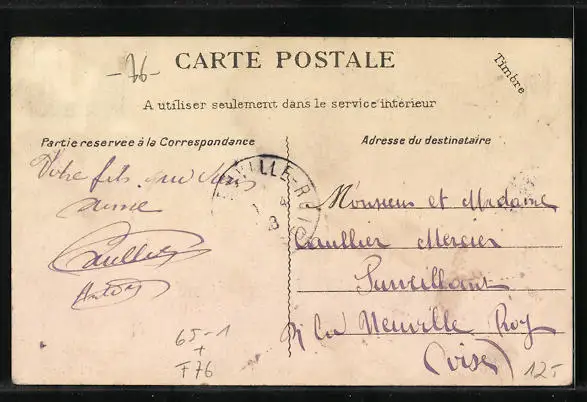 -76-
CARTE POSTALE
Timbre
A utiliser seulement dans le service interieur
Partie reservée à la Correspondance
Adresse du destinataire
Votre fils qui vous
aime
Caullier
Antony
NEUVILLE-ROI
8
Monsieur et Madame
Caullier Mercier
Surveillant
à la Neuville Roy
(Oise)
65-1
+
F76
12-